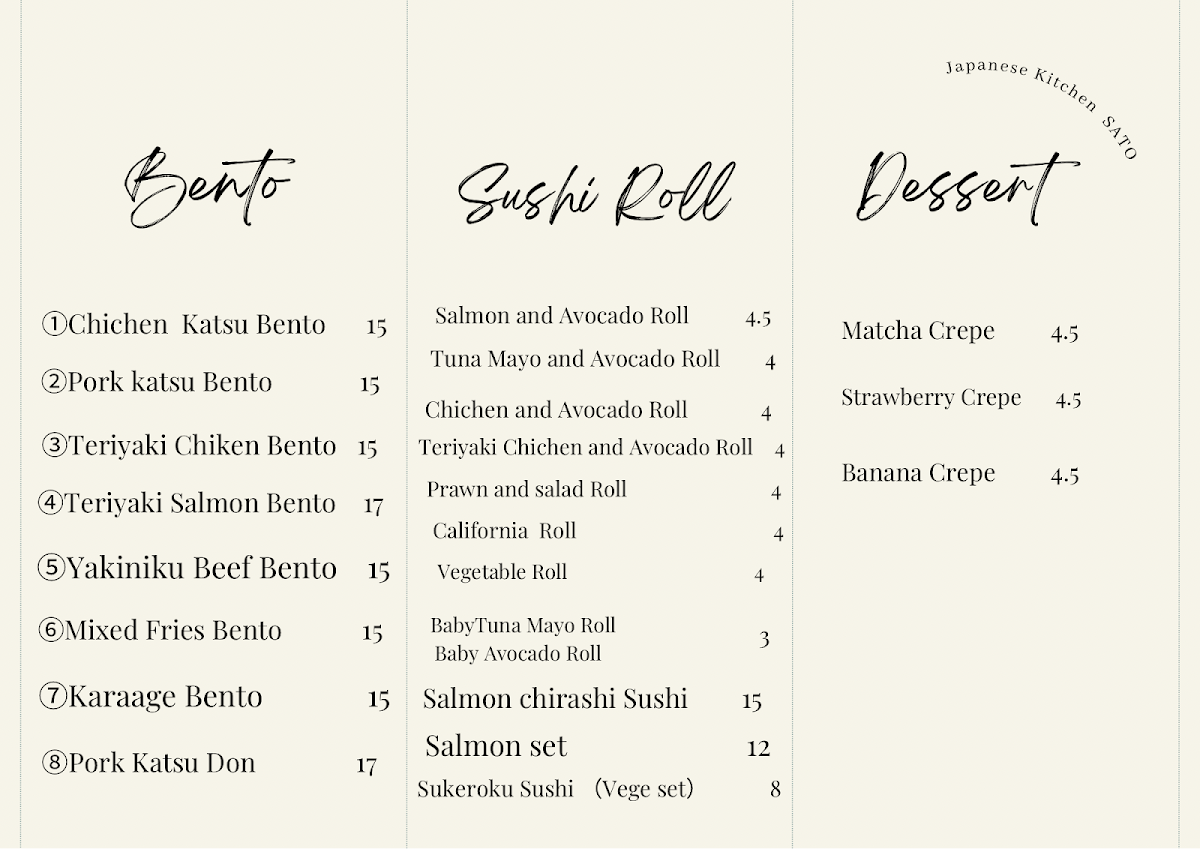 Japanese Kitchen SATO
Bento
①Chichen Katsu Bento 15
②Pork katsu Bento 15
③Teriyaki Chiken Bento 15
④Teriyaki Salmon Bento 17
⑤Yakiniku Beef Bento 15
⑥Mixed Fries Bento 15
⑦Karaage Bento 15
⑧Pork Katsu Don 17
Sushi Roll
Salmon and Avocado Roll 4.5
Tuna Mayo and Avocado Roll 4
Chichen and Avocado Roll 4
Teriyaki Chichen and Avocado Roll 4
Prawn and salad Roll 4
California Roll 4
Vegetable Roll 4
BabyTuna Mayo Roll
Baby Avocado Roll 3
Salmon chirashi Sushi 15
Salmon set 12
Sukeroku Sushi （Vege set） 8
Dessert
Matcha Crepe 4.5
Strawberry Crepe 4.5
Banana Crepe 4.5